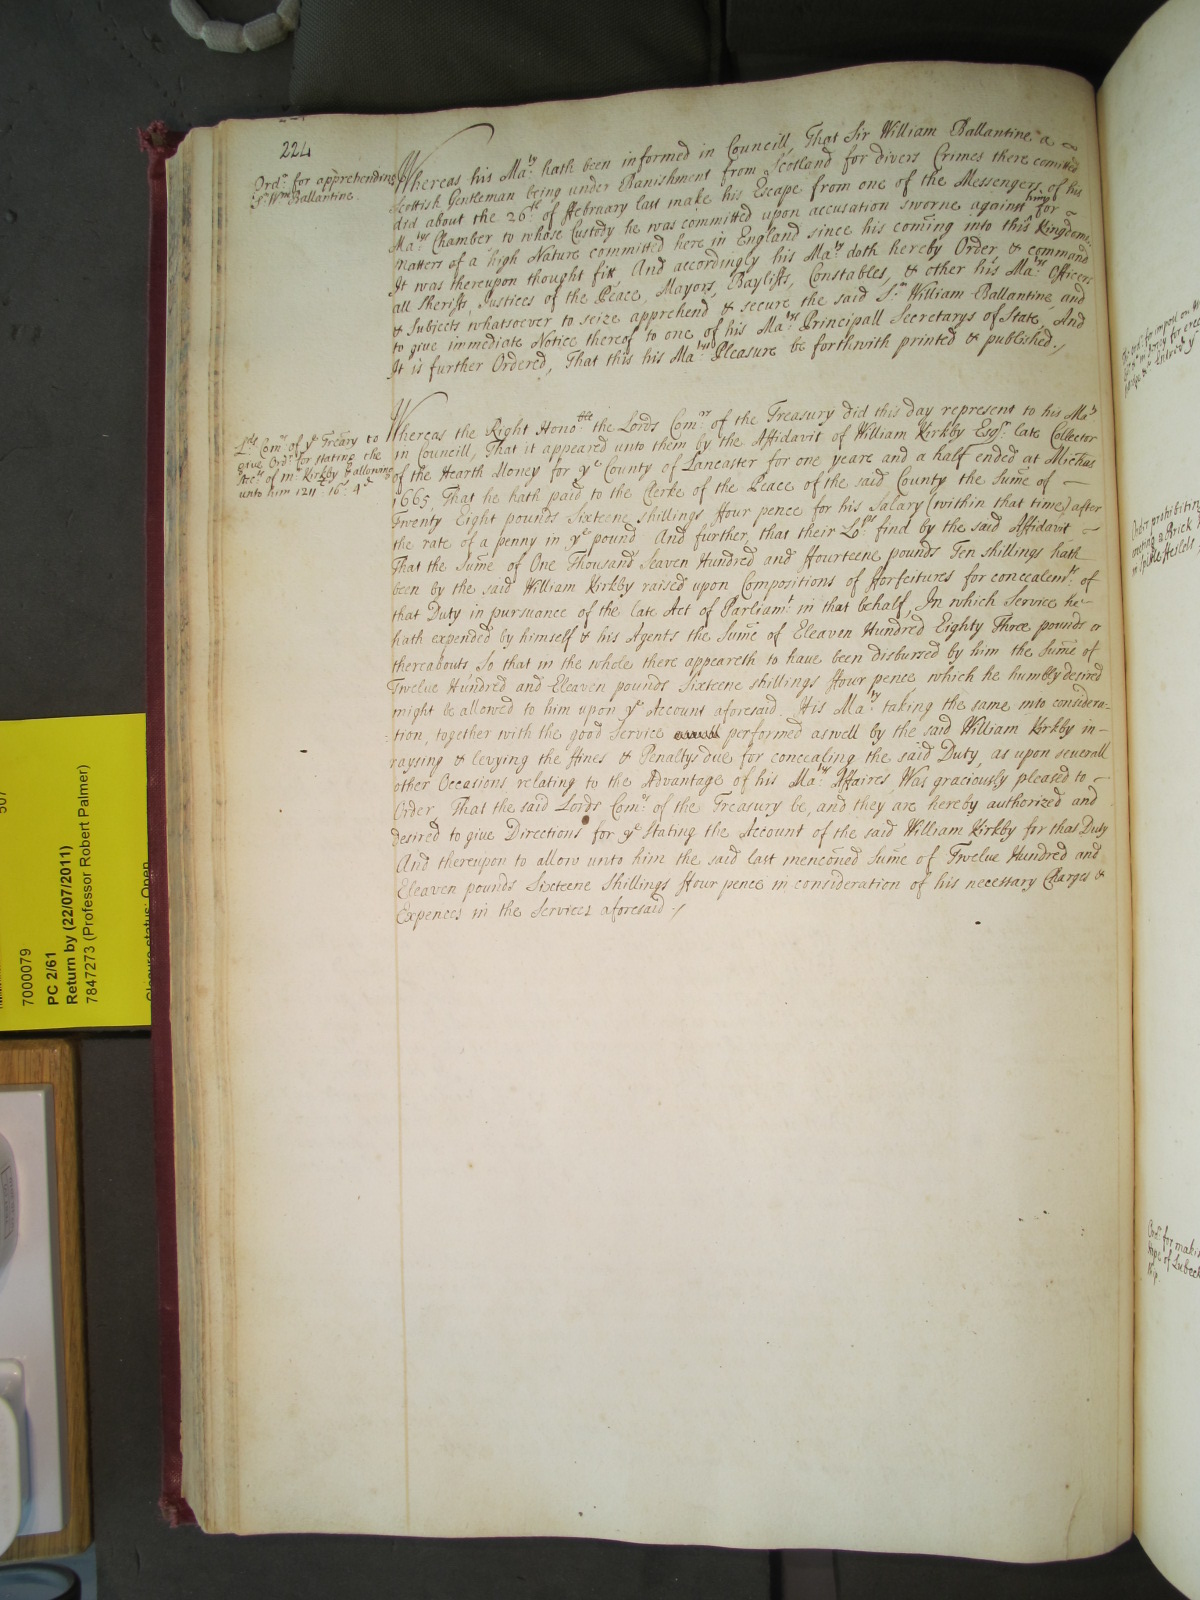 224
Ordr. for apprehending
Sr. Wm. Ballantine.
Whereas his Maty. hath been informed in Councill, That Sir William Ballantine a
Scottish Gentleman being under Banishment from Scotland for divers Crimes there comitted
did about the 26th. of ffebruary last make his Escape from one of the Messengers of his
Matys Chamber to whose Custody he was committed upon accusation sworne against him for
Matters of a high Nature committed here in England since his coming into this Kingdome.
It was thereupon thought fitt And accordingly his Maty. doth hereby Order & command
all Sheriffs, Justices of the Peace, Mayors, Bayliffs, Constables, & other his Matys. Officers
& Subjects whatsoever to seize apprehend & secure the said Sr. William Ballantine, and
to give immediate Notice thereof to one of his Matys. Principall Secretarys of State, And
It is further Ordered, That this his Matys. Pleasure be forthwith printed & published./
Lds Comrs of ye Treãry to
give Ordr. for stating the
Acct. of mr. Kirkby & allowing
unto him 1211l: 16s: 4d
Whereas the Right Honoble the Lords Comrs of the Treasury did this day represent to his Maty
in Councill, That it appeared unto them by the Affidavit of William Kirkby Esqr. late Collector
of the Hearth Money for ye County of Lancaster for one yeare and a half ended at Michas
1665, That he hath paid to the Clerke of the Peace of the said County the Sume of
Twenty Eight pounds Sixteene shillings ffour pence for his Salary (within that time) after
the rate of a penny in ye pound And further, that their Lopps find by the said Affidavit
That the Sume of One Thousand Seaven Hundred and ffourteene pounds Ten shillings hath
been by the said William Kirkby raised upon Compositions of fforfeitures for concealemt. of
that Duty in pursuance of the late Act of Parliamt. in that behalf, In which Service he
hath expended by himself & his Agents the Sume of Eleaven Hundred Eighty Three pounds or
thereabouts So that in the whole there appeareth to have been disbursed by him the Sume of
Twelve Hundred and Eleaven pounds Sixteene shillings ffour pence which he humbly desired
might be allowed to him upon ye Account aforesaid. His Maty taking the same into considera-
tion, together with the good Service performed aswell by the said William Kirkby in
raysing & levying the ffines & Penaltys due for concealing the said Duty, as upon severall
other Occasions relating to the Advantage of his Matys Affaires, Was graciously pleased to
Order That the said Lords Comrs of the Treasury be, and they are hereby authorized and
desired to give Directions for ye Stating the Account of the said William Kirkby for that Duty
And thereupon to allow unto him the said last mencõned Sume of Twelve Hundred and
Eleaven pounds Sixteene Shillings ffour pence in consideration of his necessary Charges &
Expences in the Services aforesaid./
7000079
PC 2/61
Return by (22/07/2011)
7847273 (Professor Robert Palmer)
Closure status: Open